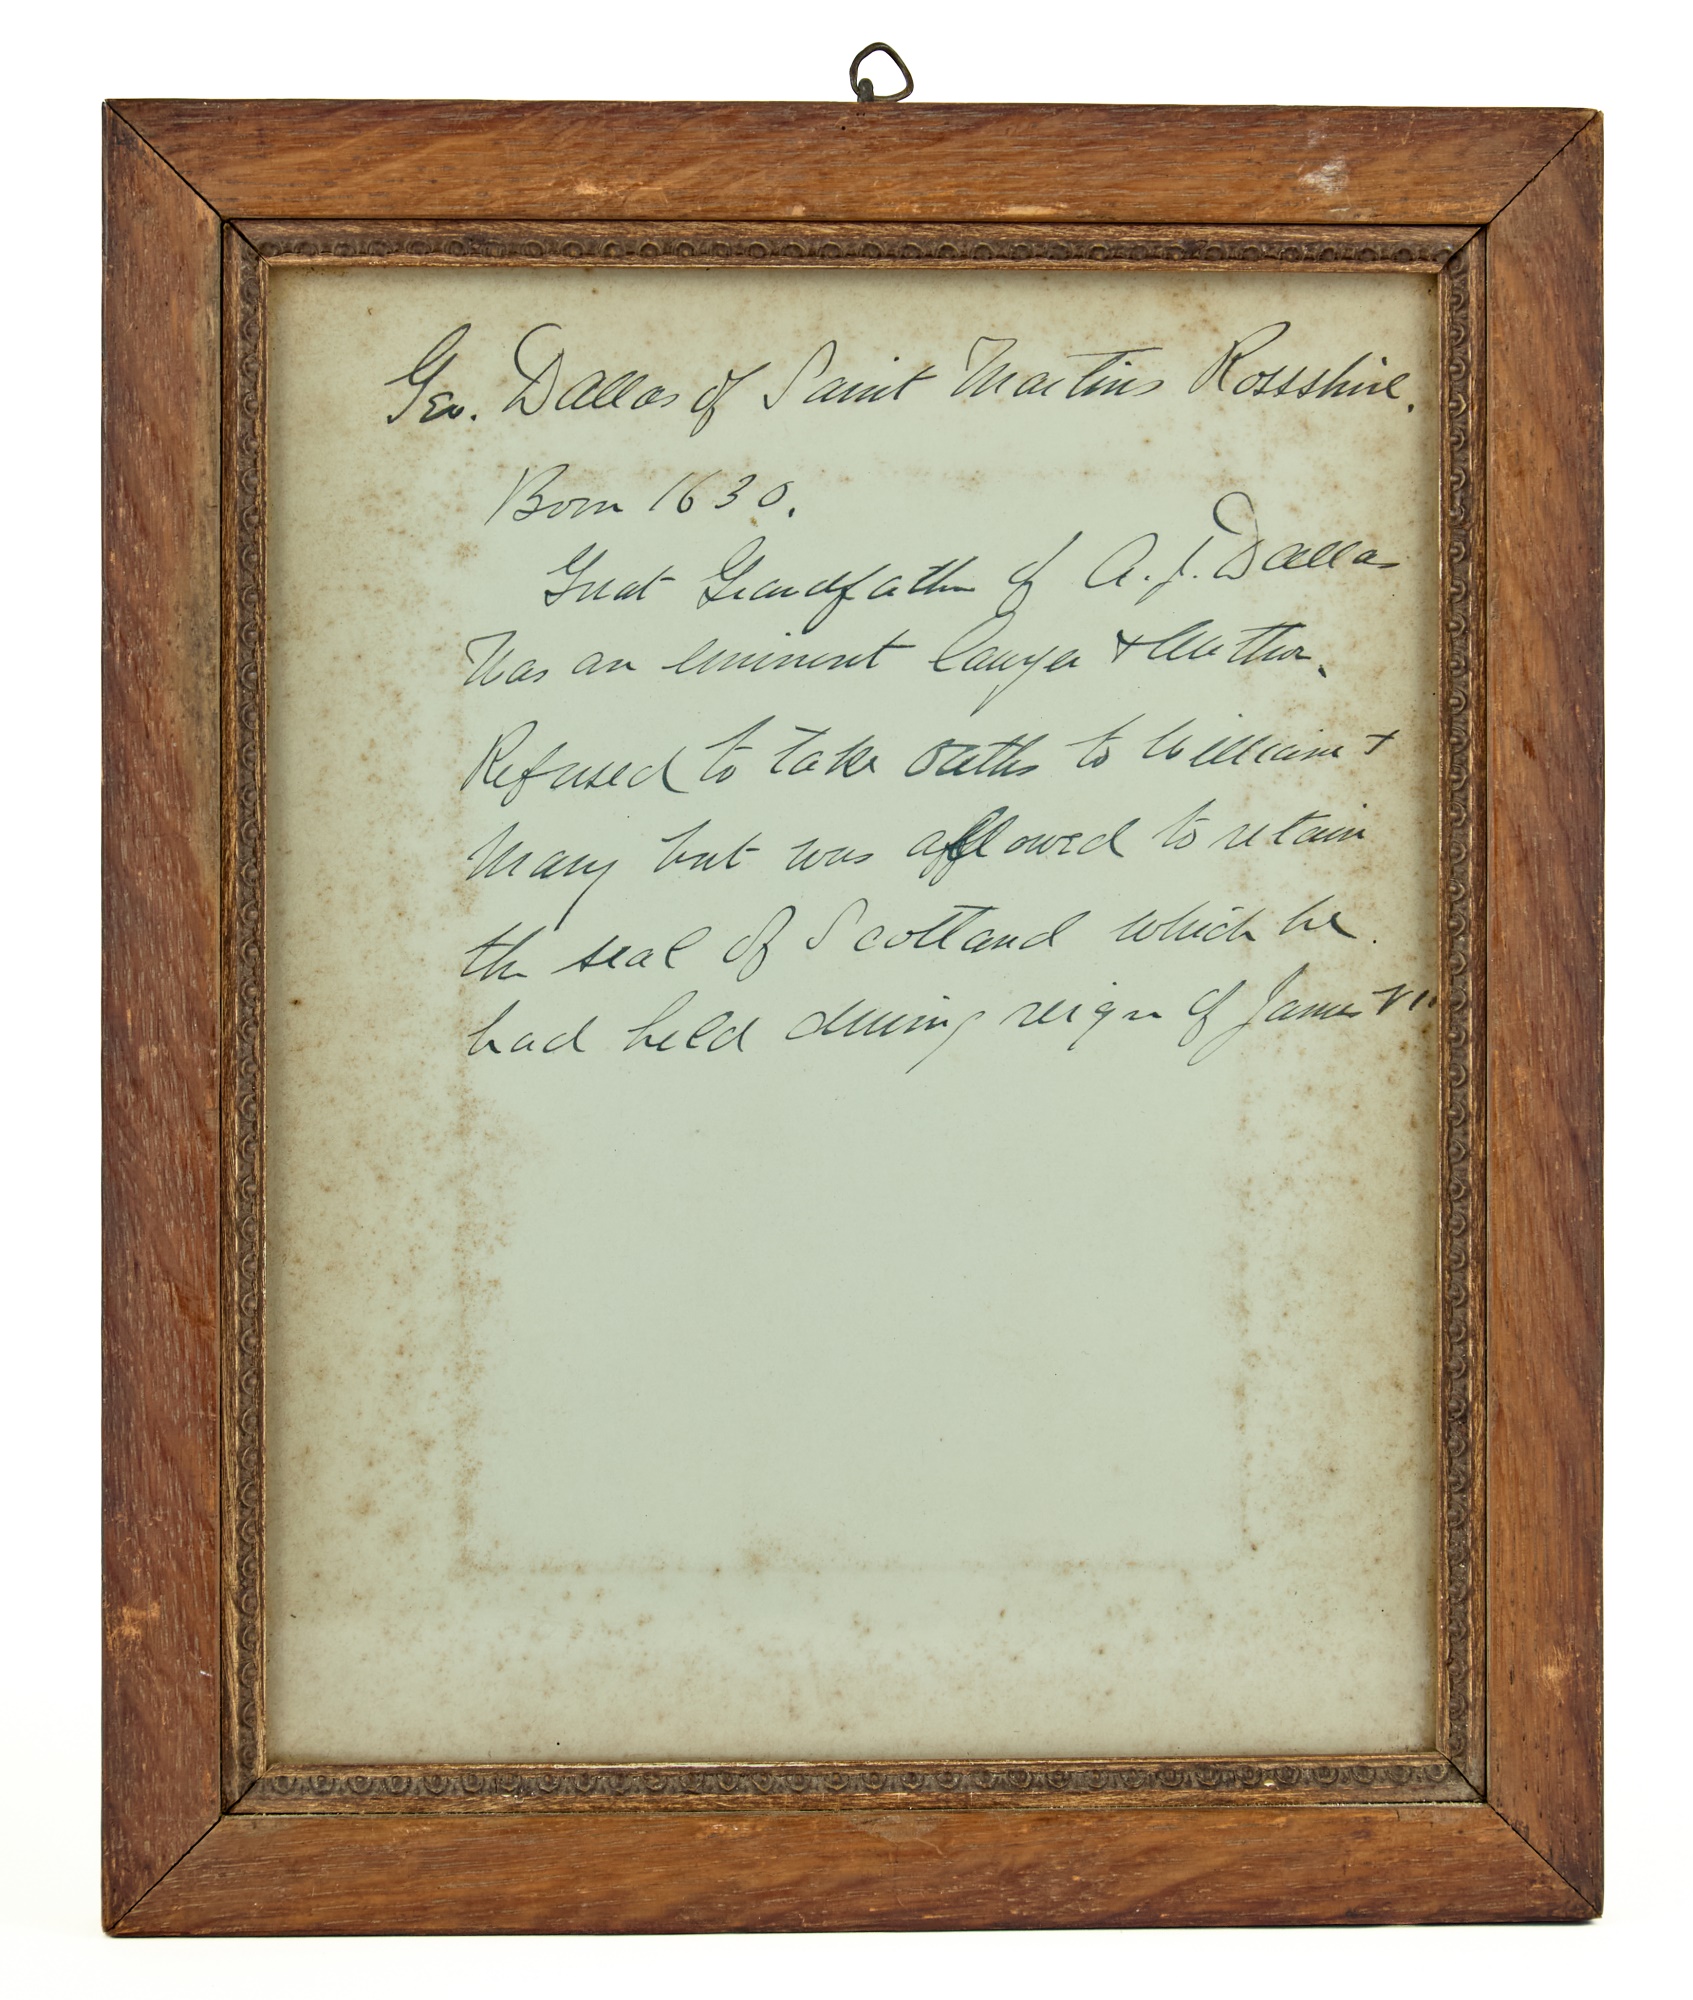 Geo. Dallas of Saint Martins Rossshire.
Born 1630.
Great Grandfather of A. J. Dallas
Was an eminent lawyer & Author.
Refused to take oaths to William &
Mary but was allowed to retain
the seal of Scotland which he
had held during reign of James VII